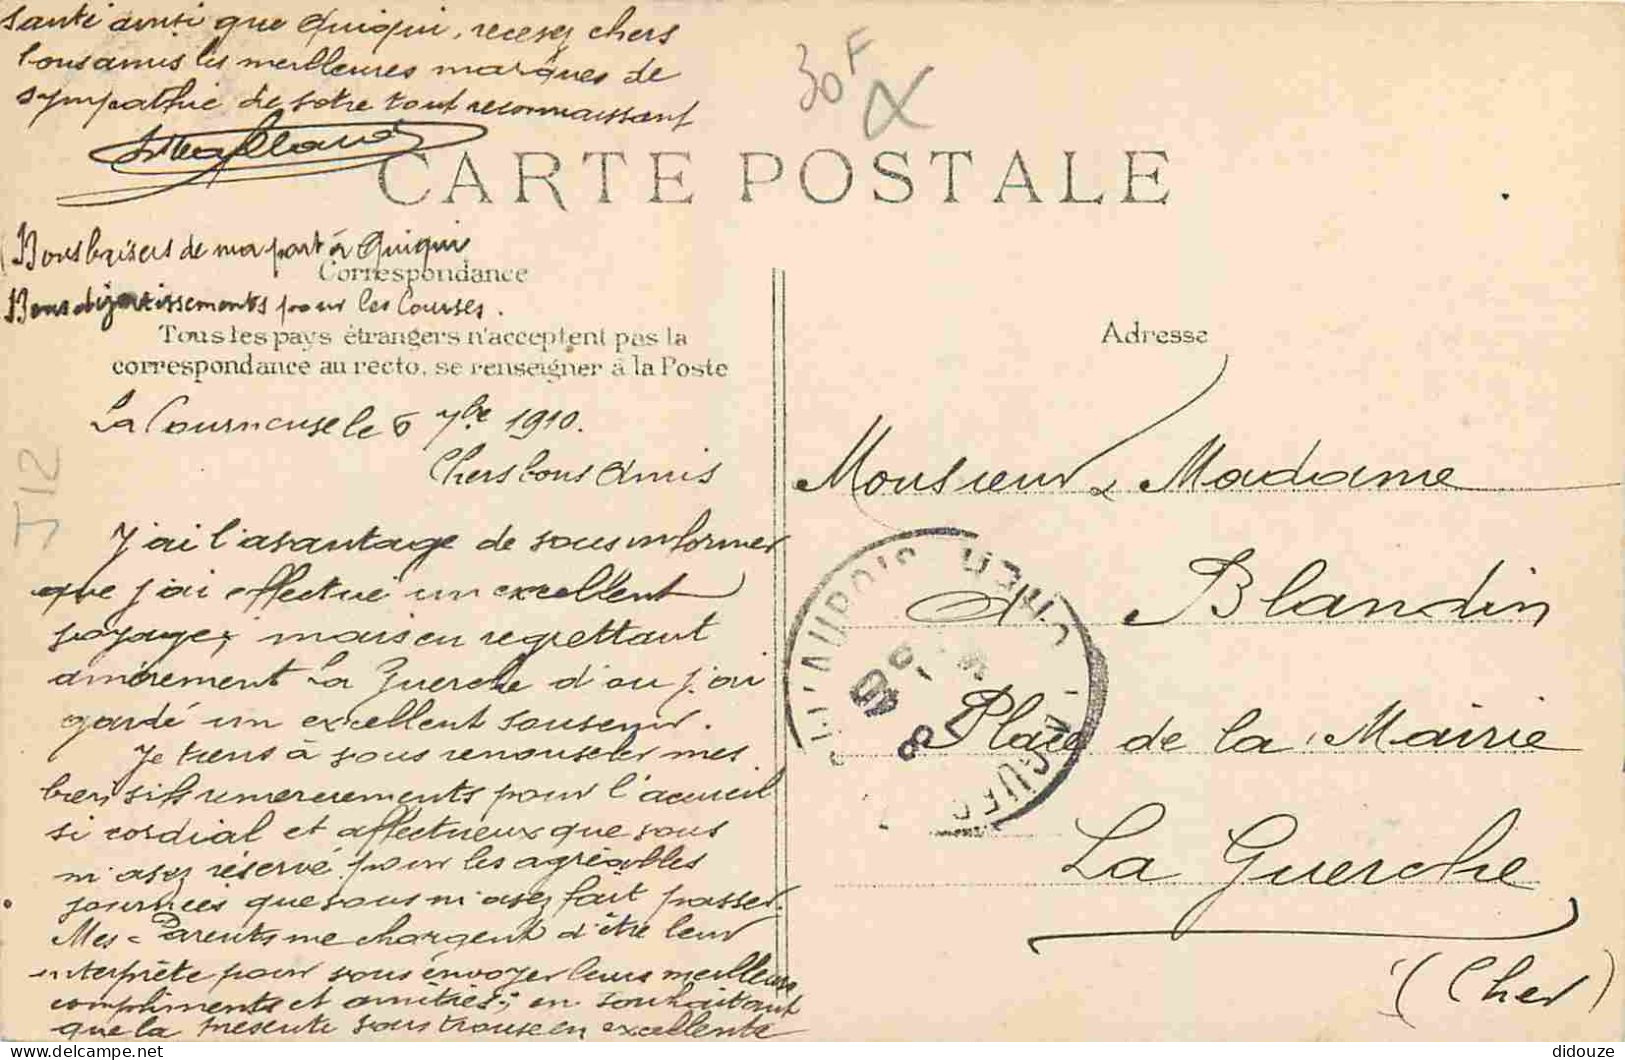 santé ainsi que Quiqui, recevez chers
bons amis les meilleures marques de
sympathie de votre tout reconnaissant
30F
CARTE POSTALE
Bons baisers de ma part à Quiqui
Correspondance
Bons divertissements pour les Courses.
Tous les pays étrangers n'acceptent pas la
correspondance au recto, se renseigner à la Poste
La Courneuve le 6 7bre 1910.
Chers bons Amis
J'ai l'avantage de vous informer
que j'ai effectué un excellent
voyage; mais en regrettant
amèrement La Guerche d'ou j'ai
gardé un excellent souvenir.
Je tiens à vous renouveler mes
bien sifs remerciements pour l'accueil
si cordial et affectueux que vous
m'avez réservé pour les agréables
journées que vous m'avez fait passer.
Mes Parents me chargent d'être leur
interprète pour vous envoyer leurs meilleurs
compliments et amitiés; en souhaitant
que la présente vous trouve en excellente
J12
Adresse
Monsieur & Madame
Blandin
Place de la Mairie
La Guerche
(Cher)
didouze